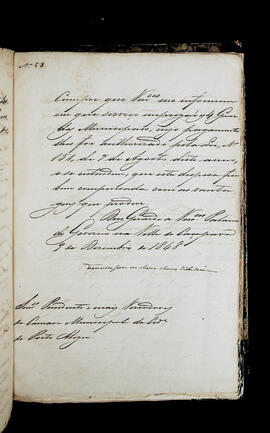 Nº 53
Cumpre que Vmces me informem
em que serviço empregão 4 Guar
das Municipaes, cujo pagamento
lhes foi authorisado pela Lei Nº
151, de 7 de Agosto deste anno,
e se entendem, que esta despeza foi
bem comprehendida com as
que
Deos Guarde a Vmces Palacio
do Governo na Villa de Caçapava
9 de Dezembro de 1848

Senrs Presidente e mais Vereadores
da Camara Municipal da Cide
de Porto Alegre